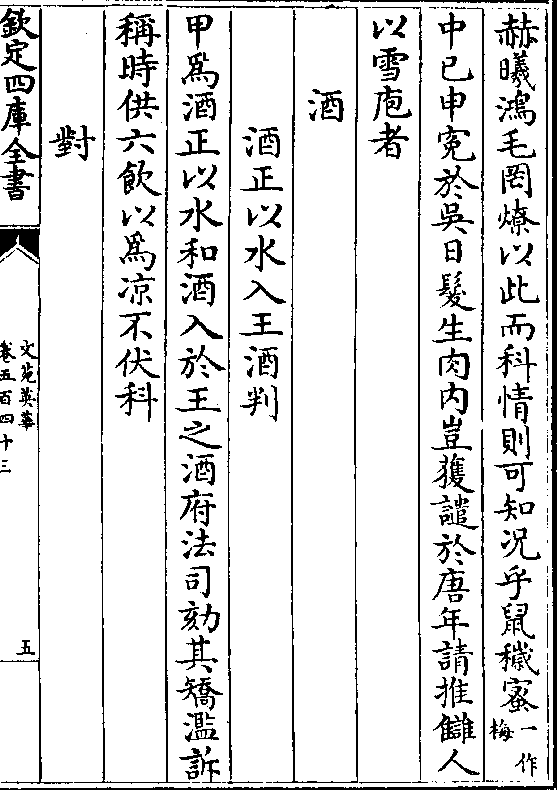 赫曦鴻毛罔燎以此而科情則可知况乎鼠穢蜜一作梅
中已申寃於吳日髮生肉内豈獲譴於唐年請推讎人
以雪庖者
酒
酒正以水入王酒判
甲爲酒正以水和酒入於王之酒府法司劾其矯濫訴
稱時供六飲以爲凉不伏科
對
欽定四庫全書
文苑英華
卷五百四十三
五